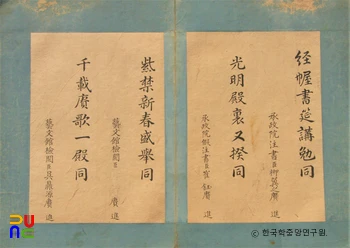 經幄書筵講勉同
承政院注書臣柳冀之賡 進
光明殿裏又揆同
承政院假注書臣崔 賡 進
紫禁新春盛擧同
藝文館檢閱臣 賡 進
千載賡歌一殿同
藝文館檢閱臣具 賡 進
한국학중앙연구원